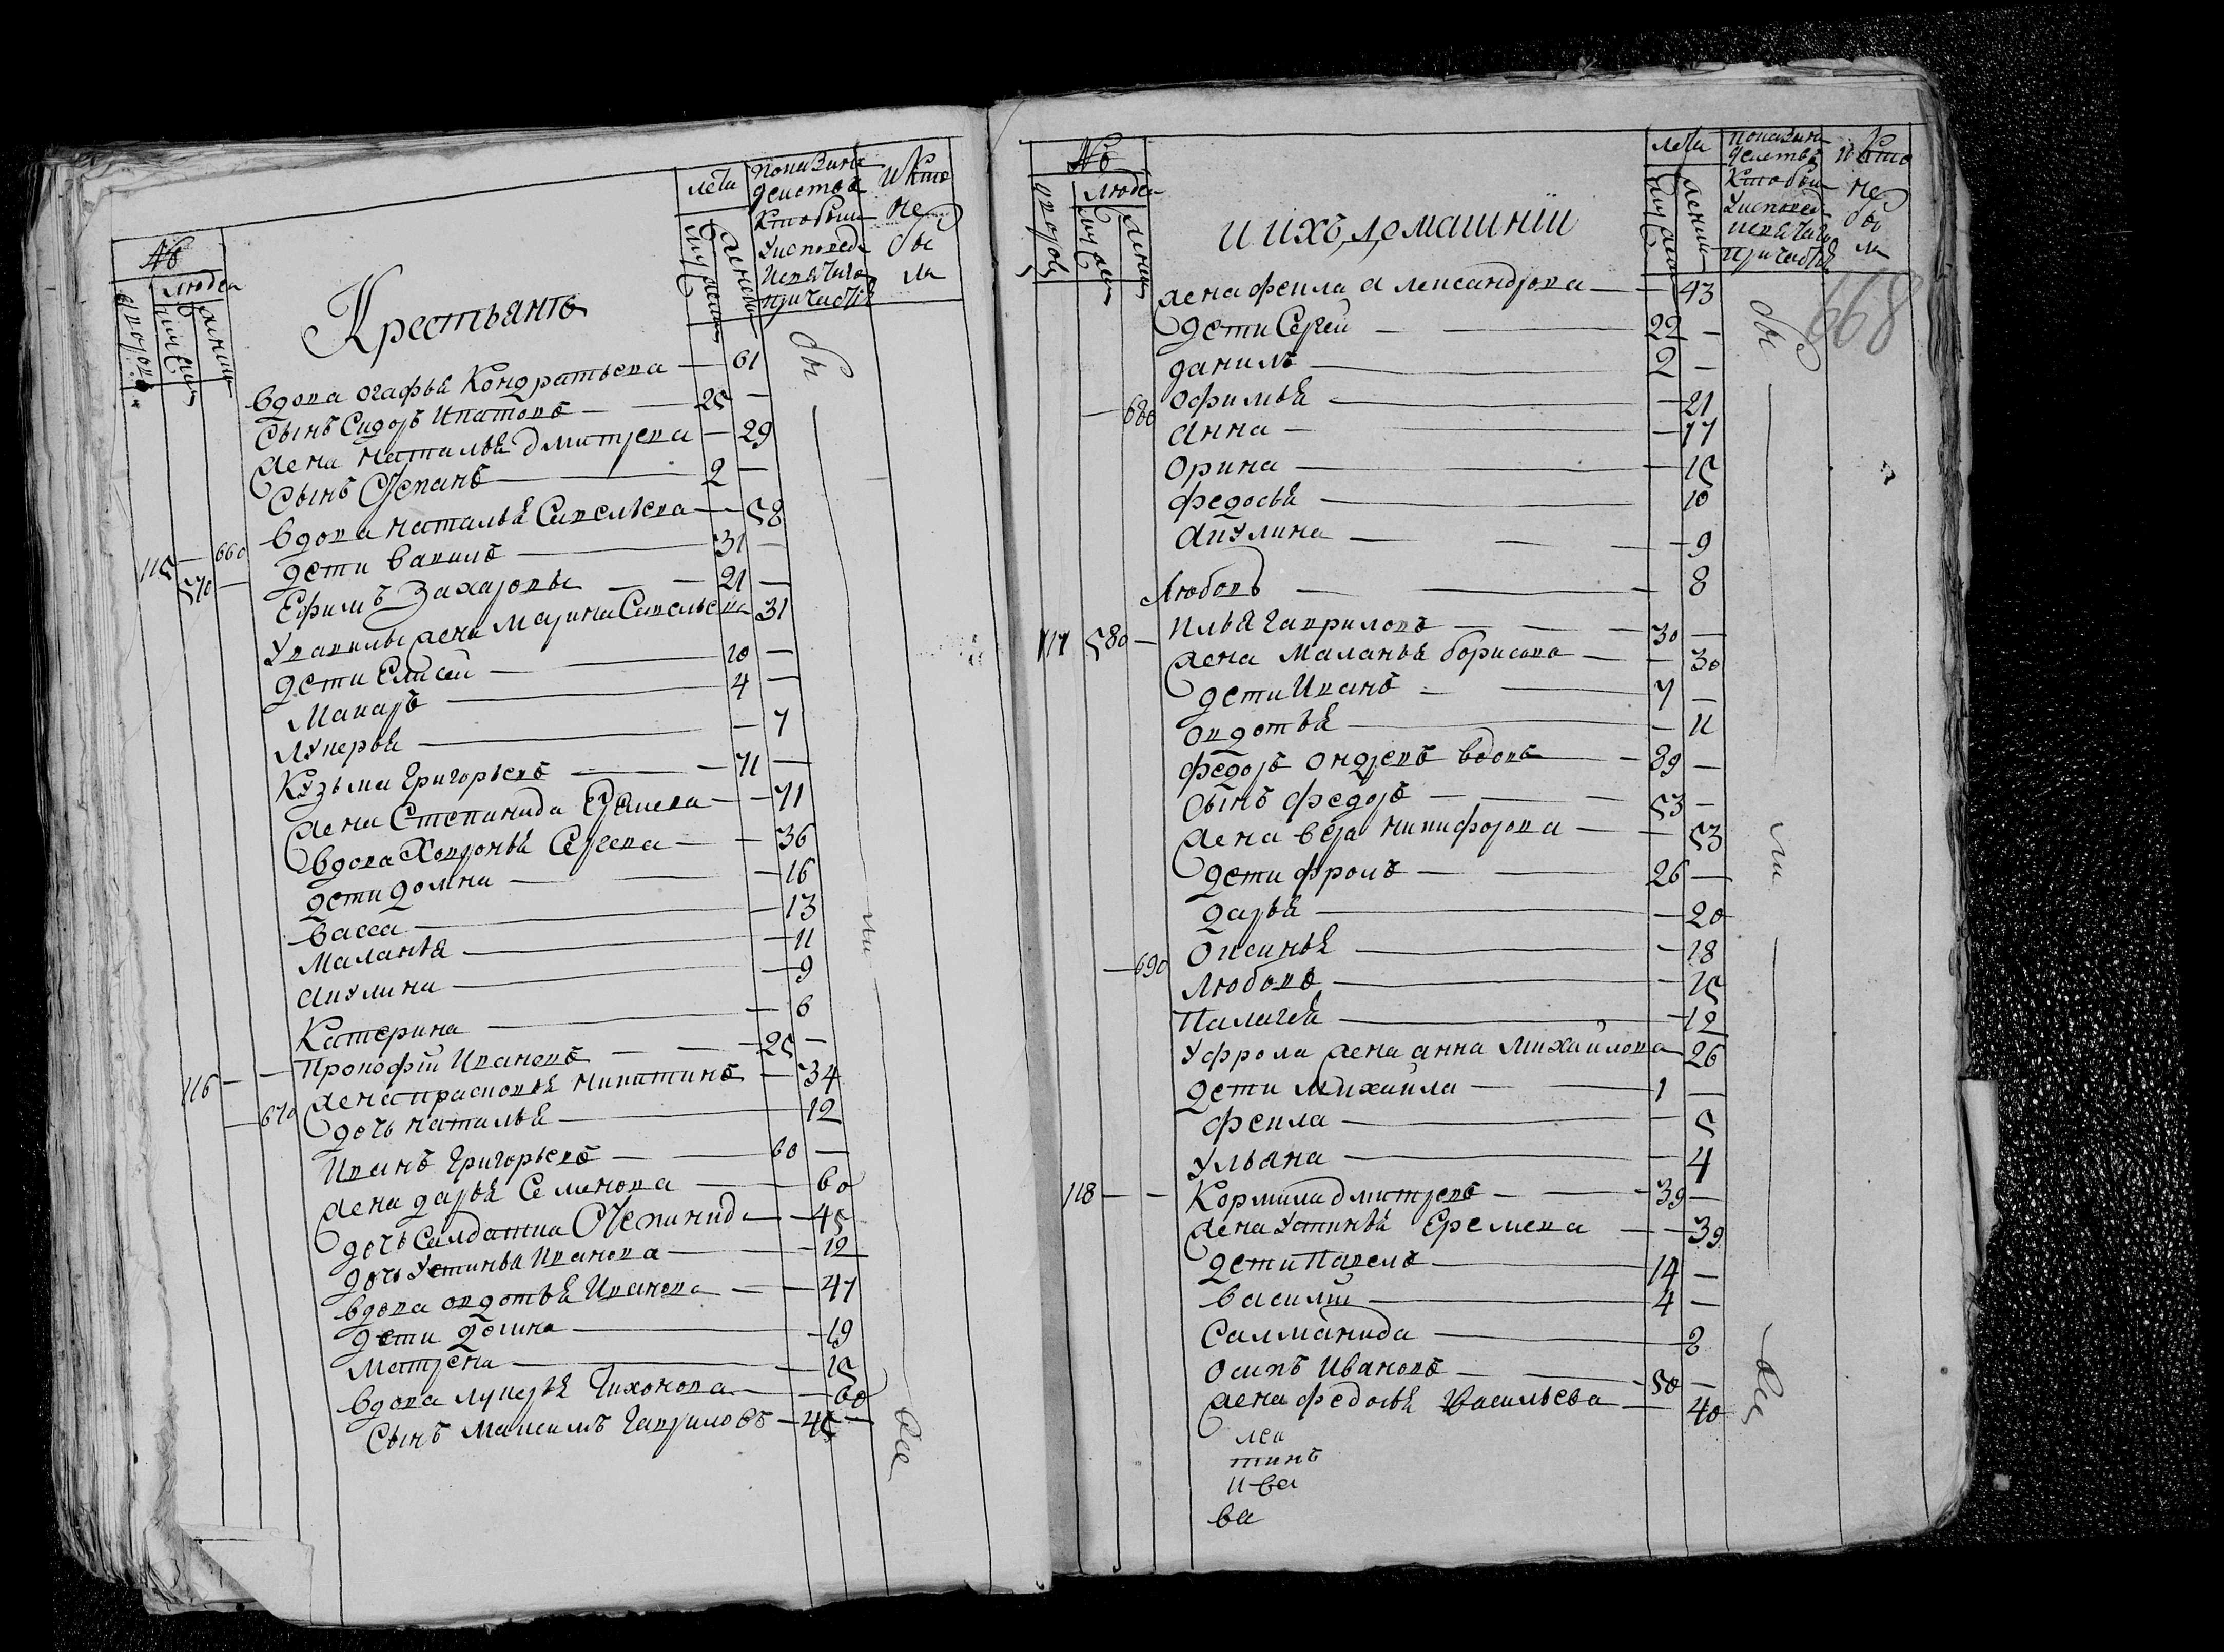 №
людей
дворовъ
мужеска
женска
Крестьяне
лета
мужеска
женска
показание
действъ
кто были
у исповеди
и св. таинъ
причастия
и кто
не
бы
ли
вдова Огафья Кондратьева — 61
Сынъ Сидоръ Ипатовъ — 25 —
жена Наталья Дмитрева — 29
Сынъ Степанъ — 2 —
вдова Наталья Савельева — 58
115 — 660 дети вавилъ — 31 —
570 — Ефимъ Захаровы — 21 —
У вавилы жена Марина Савельева 31
дети Елисей — 10 —
Макаръ — 4 —
Лукерья — 7
Кузьма Григорьевъ — 71 —
жена Степанида — 71
вдова Ховронья Сергева — 36
дети Домна — 16
васса — 13
Маланья — 11
Акулина — 9
Катерина — 6
116 — — Прокофий Ивановъ — 25 —
жена Прасковья Никитина — 34
— 670 дочь Наталья — 12
Иванъ Григорьевъ — 60 —
жена дарья Семенова — 60
дочь Салдатка Степанида — 45
дочь Устинья Иванова — 12
вдова Овдотья Иванова — 47
дети Домна — 19
Матрена — 15
вдова Лукерья Тихонова — 60
Сынъ Максимъ Гавриловъ — 45 —
бы
ли
все
№
людей
дворовъ
мужеска
женска
и ихъ домашнии
лета
мужеска
женска
показание
действъ
кто были
у исповеди
и св. таинъ
причастия
и кто
не
бы
ли
668
жена Фекла Александрова — 43
дети Сергей — 22 —
данилъ — 2 —
— 680 Офимья — 21
Анна — 17
Орина — 15
Федосья — 10
Акулина — 9
Любовь — 8
117 580 — Илья Гавриловъ — 30 —
жена Маланья борисова — 30
дети Иванъ — 7 —
Овдотья — 11
Федоръ Ондревъ вдовъ — 89 —
Сынъ Федоръ — 53 —
жена вера Никифорова — 53
дети Фролъ — 26 —
дарья — 20
— 690 Оксинья — 18
Любовь — 15
Палагея — 12
У Фрола жена Анна Михайлова — 26
дети Михайла — 1 —
Фекла — 5
Ульяна — 4
118 — — Кормила дмитревъ — 39 —
жена Устинья Еремеева — 39
дети Павелъ — 14 —
Василий — 4 —
Саламанида — 2
Осипъ Ивановъ — 50 —
жена Федосья Васильева — 40
бы
ли
все
лея
тинъ
и ва
ва